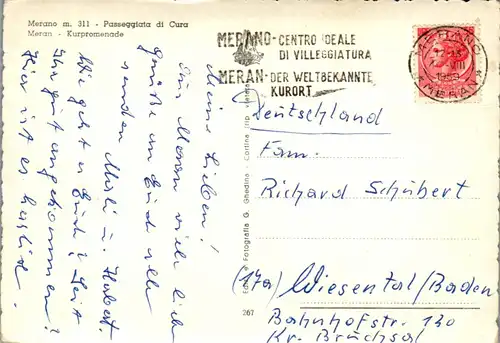 Merano m. 311 - Passeggiata di Cura
Meran - Kurpromenade
MERANO - CENTRO IDEALE
DI VILLEGGIATURA
MERAN - DER WELTBEKANNTE
KURORT
MERANO
Meine Lieben!
Aus Meran viele liebe
Grüße an Euch alle
senden Misli u. Hubert.
Wie geht es Euch? Seit
Ihr gut angekommen?
Hier ist es herrlich.
Deutschland
Fam.
Richard Schubert
(17a) Wiesental/Baden
Bahnhofstr. 130
Kr. Bruchsal
Fotografia G. Ghedina - Cortina
267